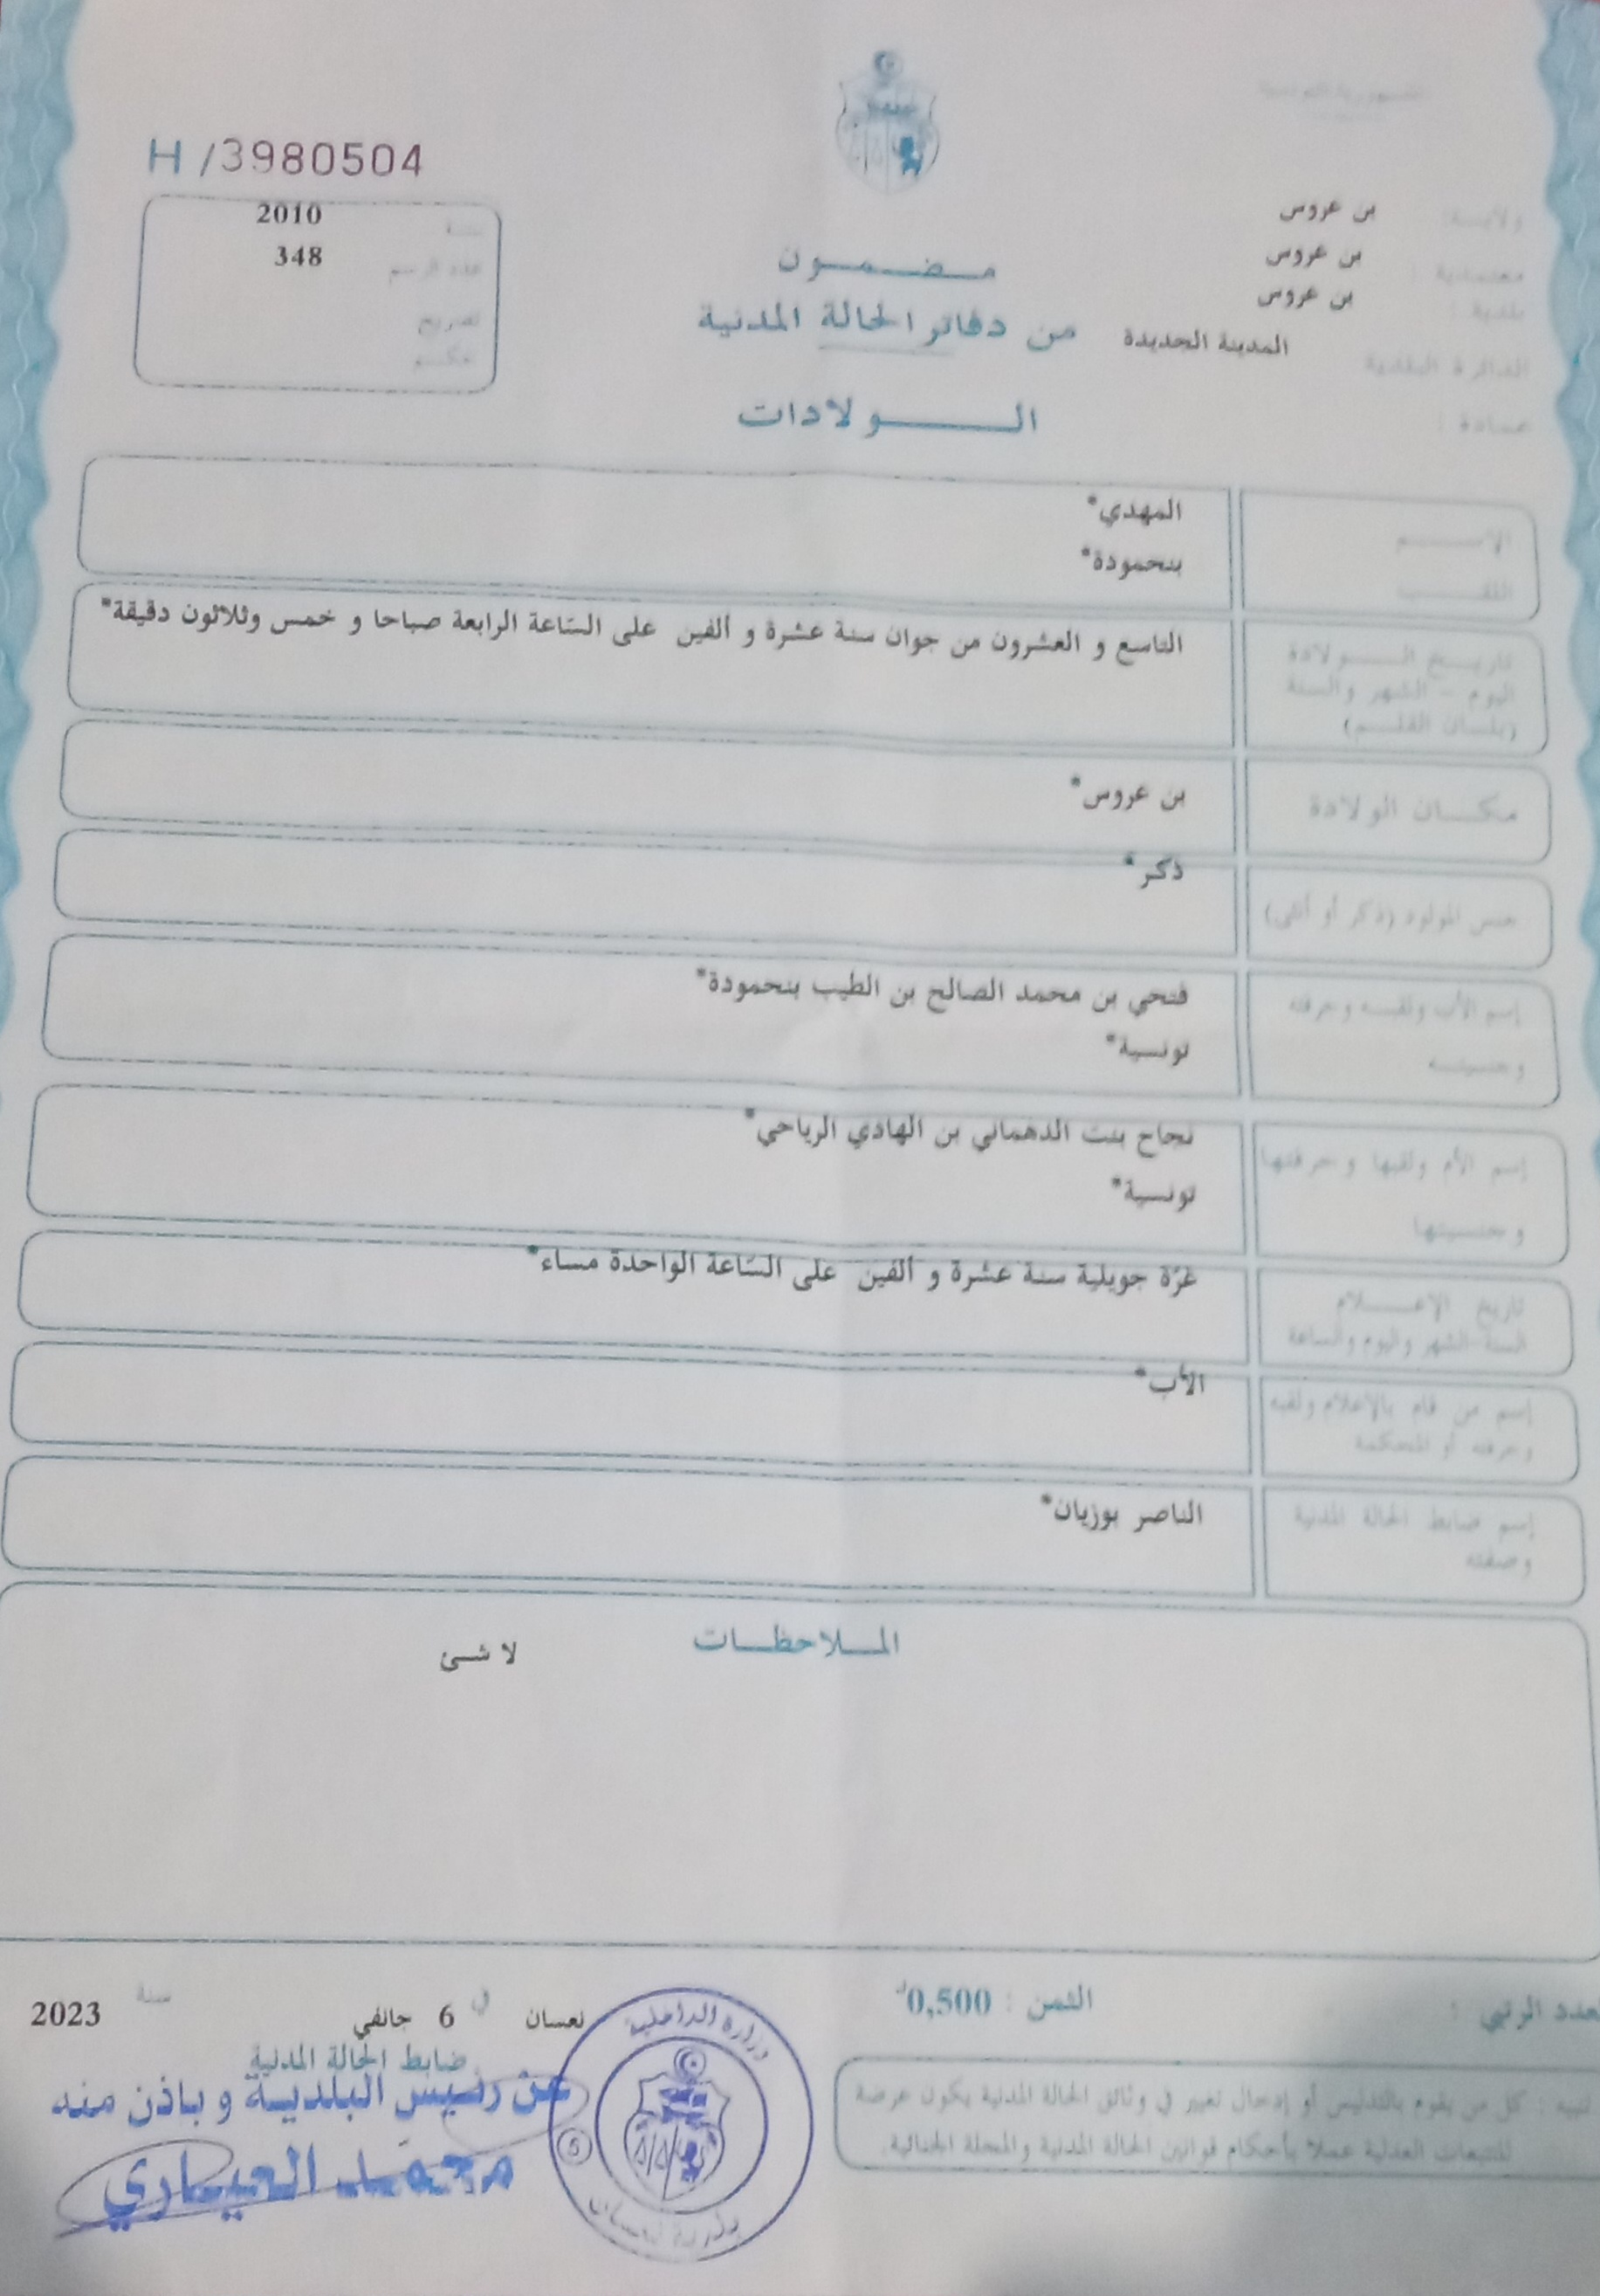 الجمهورية التونسية
H /3980504
ولايــة: بن عروس
معتمدية : بن عروس
بلدية : بن عروس
الدائرة البلدية المدينة الجديدة
عمادة :
سنة 2010
عدد الرسم 348
تصريح
حكـم
مـضـمـون
من دفاتر الحالة المدنية
الـولادات
الإسـم المهدي*
اللقـب بنحمودة*
تاريـخ الـولادة التاسع و العشرون من جوان سنة عشرة و ألفين على السّاعة الرابعة صباحا و خمس وثلاثون دقيقة*
اليوم - الشهر والسنة
(بلسان القلـم)
مكـان الولادة بن عروس*
جنس المولود (ذكر أو أنثى) ذكر*
إسم الأب ولقبـه وحرفته فتحي بن محمد الصالح بن الطيب بنحمودة*
وجنسيتـه تونسية*
إسم الأم ولقبها وحرفتها نجاح بنت الدهماني بن الهادي الرياحي*
وجنسيتها تونسية*
تاريخ الإعـلام غرّة جويلية سنة عشرة و ألفين على السّاعة الواحدة مساء*
السنة-الشهر واليوم والساعة
إسم من قام بالإعلام ولقبه الأب*
وحرفته أو المحكمة
إسم ضابط الحالة المدنية الناصر بوزيان*
وصفته
المـلاحظـات
لا شئ
العدد الرتبي :
الثمن : 0,500د
نعسان في 6 جانفي سنة 2023
ضابط الحالة المدنية
عن رئيس البلدية و باذن منه
محمد العياري
وزارة الداخلية
بلدية نعسان
تنبيه : كل من يقوم بالتدليس أو إدخال تغيير في وثائق الحالة المدنية يكون عرضة
للتتبعات العدلية عملا بأحكام قوانين الحالة المدنية والمجلة الجنائية.